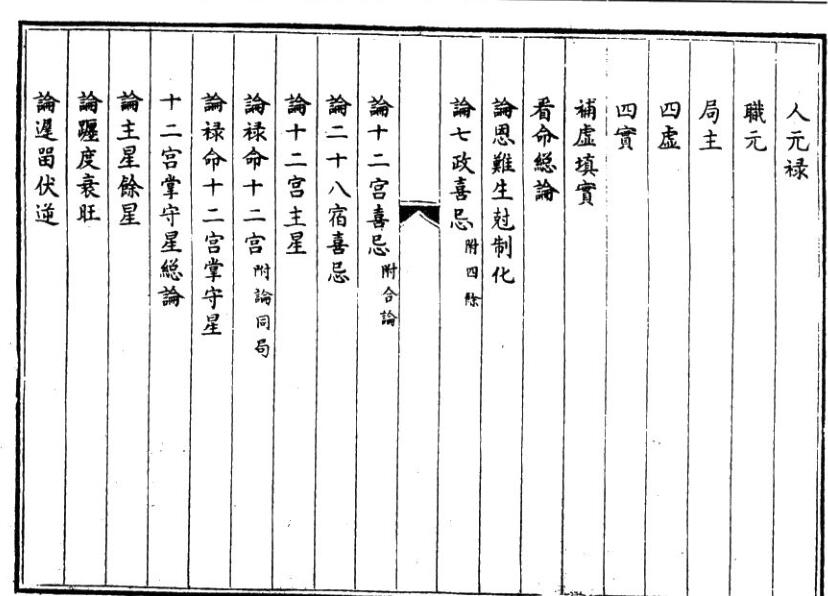 人元禄
職元
局主
四虚
四實
補虚填實
看命縂論
論恩難生尅制化
論七政喜忌附四餘
論十二宫喜忌附合論
論二十八宿喜忌
論十二宫主星
論禄命十二宫附論同局
論禄命十二宫掌守星
十二宫掌守星縂論
論主星餘星
論躔度衰旺
論遲留伏逆